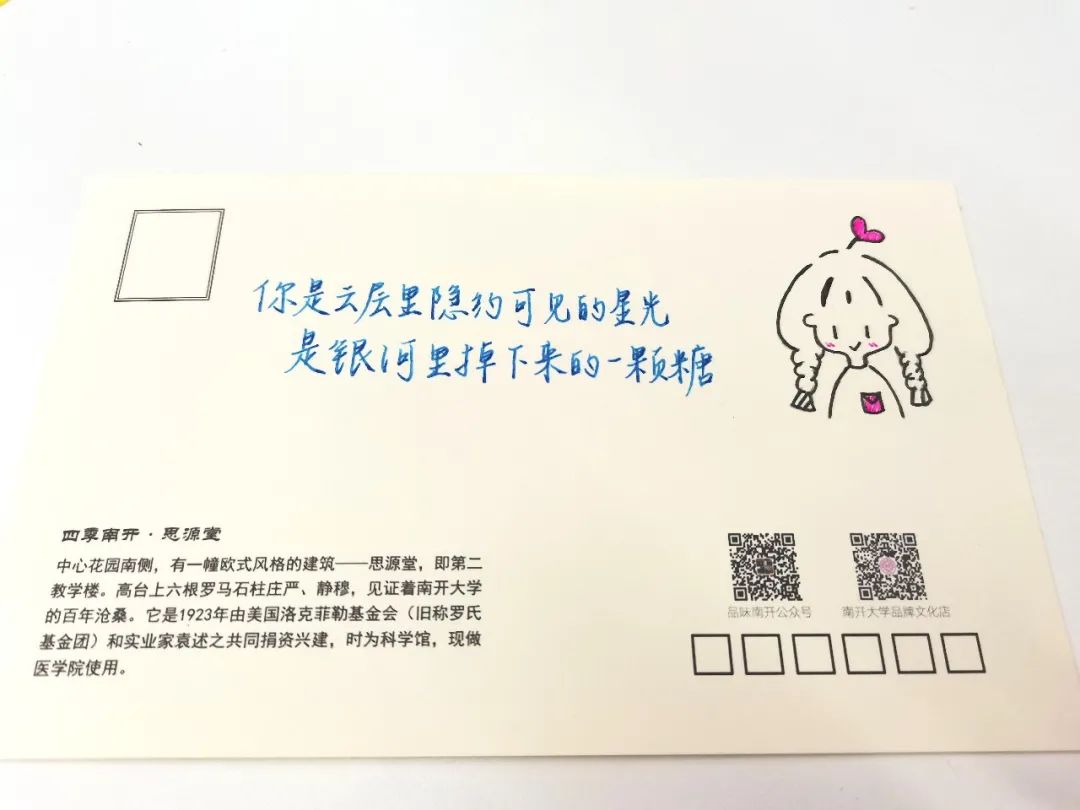 你是云层里隐约可见的星光
是银河里掉下来的一颗糖
四季南开·思源堂
中心花园南侧，有一幢欧式风格的建筑——思源堂，即第二
教学楼。高台上六根罗马石柱庄严、静穆，见证着南开大学
的百年沧桑。它是1923年由美国洛克菲勒基金会（旧称罗氏
基金团）和实业家袁述之共同捐资兴建，时为科学馆，现做
医学院使用。
品味南开公众号
南开大学品牌文化店